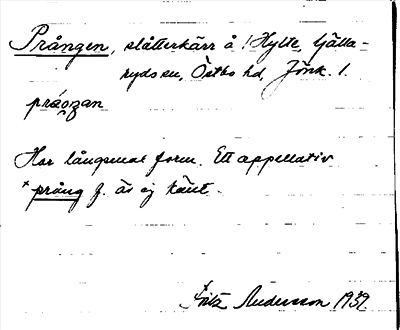 Prången, slåtterkärr å 1 Hylte, Gälla-
ryds sn, Östbo hd, Jönk. l.
Har långsmal form. Ett appellativ
* prång f. är ej känt.
Fritz Andersson 1939.